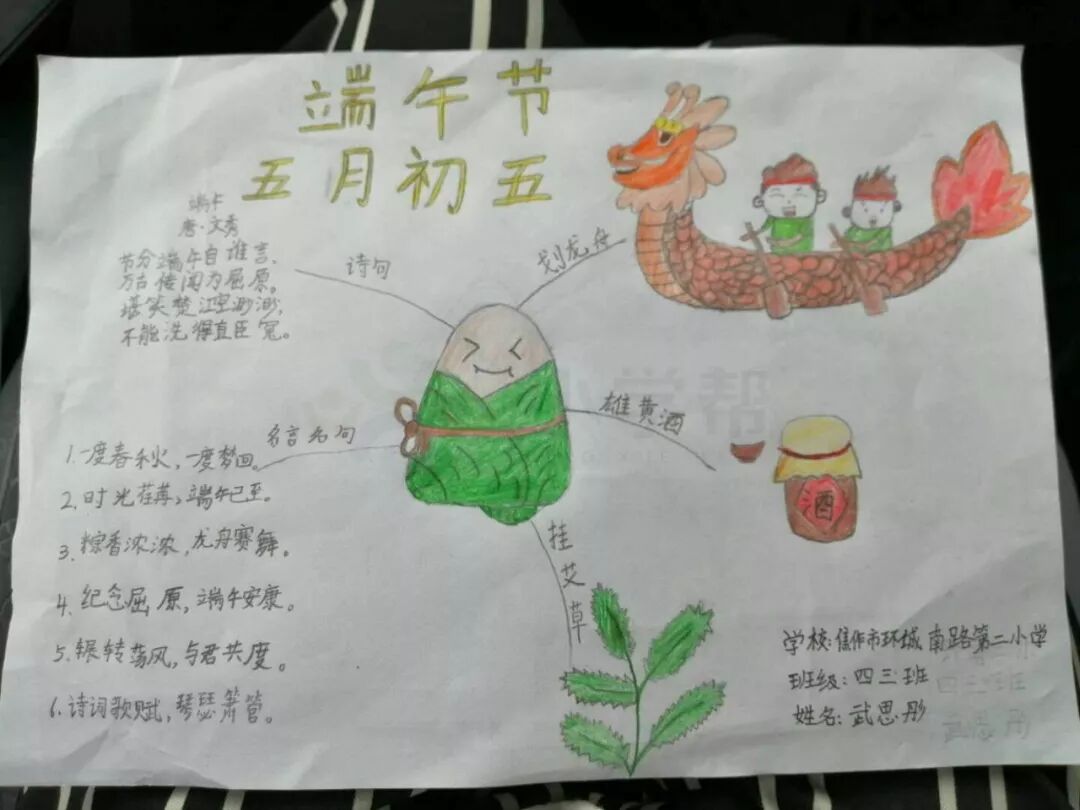 端午节
五月初五
端午
唐·文秀
节分端午自谁言,
万古传闻为屈原。
堪笑楚江空渺渺,
不能洗得直臣冤。
诗句
划龙舟
雄黄酒
酒
名言名句
1.一度春秋火,一度梦回。
2.时光荏苒,端午已至。
3.粽香浓浓,龙舟赛舞。
4.纪念屈原,端午安康。
5.辗转荡风,与君共度。
6.诗词歌赋,琴瑟箫管。
挂艾草
学校:焦作市环城南路第二小学
班级:四三班
姓名:武思彤
小学帮